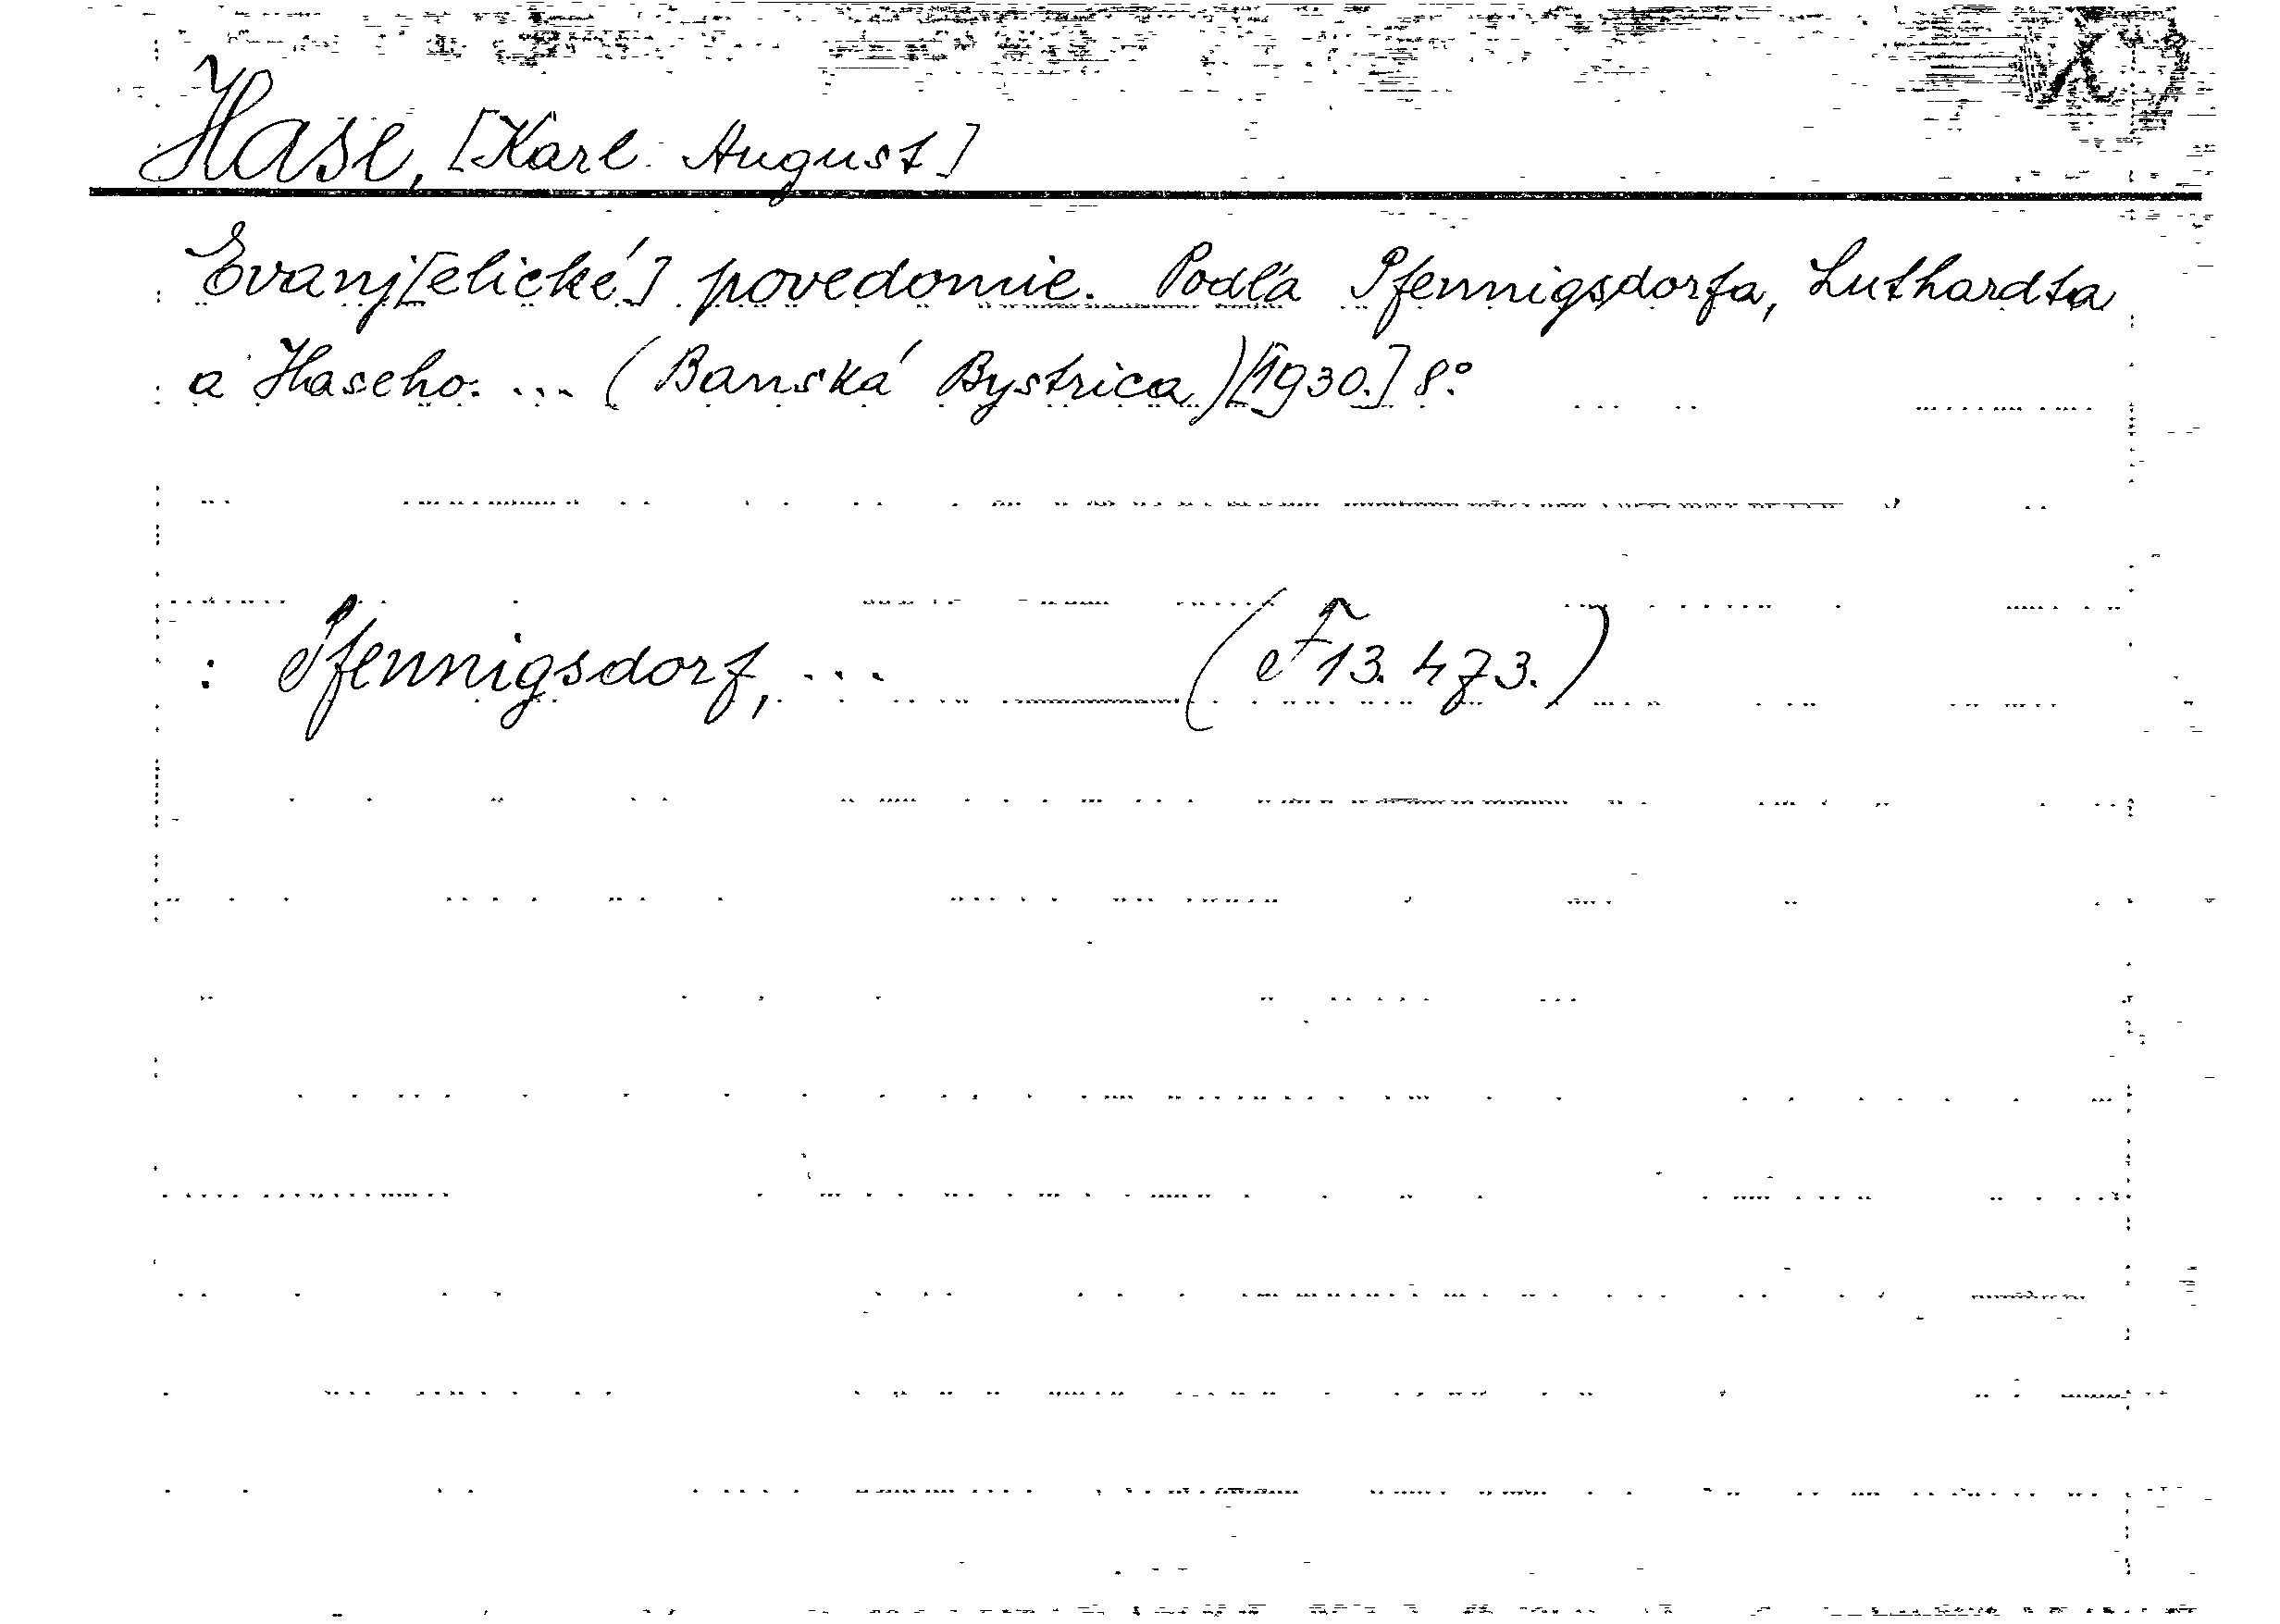 Hase, [Karl August]
Evanj[elické] povedomie. Podľa Pfennigsdorfa, Luthardta
a Haseho. ... (Banská Bystrica)[1930.] 8°
: Pfennigsdorf, ... (F 13.473.)